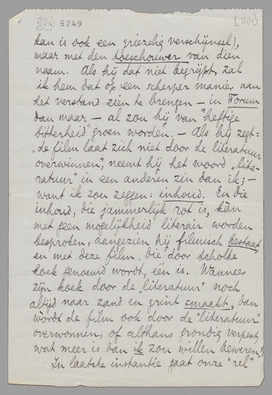 5249
kan is ook een griezelig verschijnsel),
maar met den toeschouwer van dien
naam. Als hij dat niet begrijpt, zal
ik hem dat op een scherper manier aan
het verstand zien te brengen – in Forum
dan maar – al zou hij van "heftige
bitterheid" groen worden. – Als hij zegt:
"de film laat zich niet door de literatuur
overwinnen", neemt hij het woord "lite-
ratuur" in een anderen zin dan ik; –
want ik zou zeggen: inhoud. En die
inhoud, die jammerlijk rot is, kan
met geen mogelijkheid literair worden
besproken, aangezien hij filmisch bestaat
en met deze film, die door Scholte
koek genoemd wordt, één is. Wanneer
zijn koek door de "literatuur" noch
altijd naar zand en grint smaakt, dan
wordt de film ook door de "literatuur"
overwonnen, of althans grondig verpest,
wat meer is dan ik zou willen beweren!
In laatste instantie gaat onze "rel"